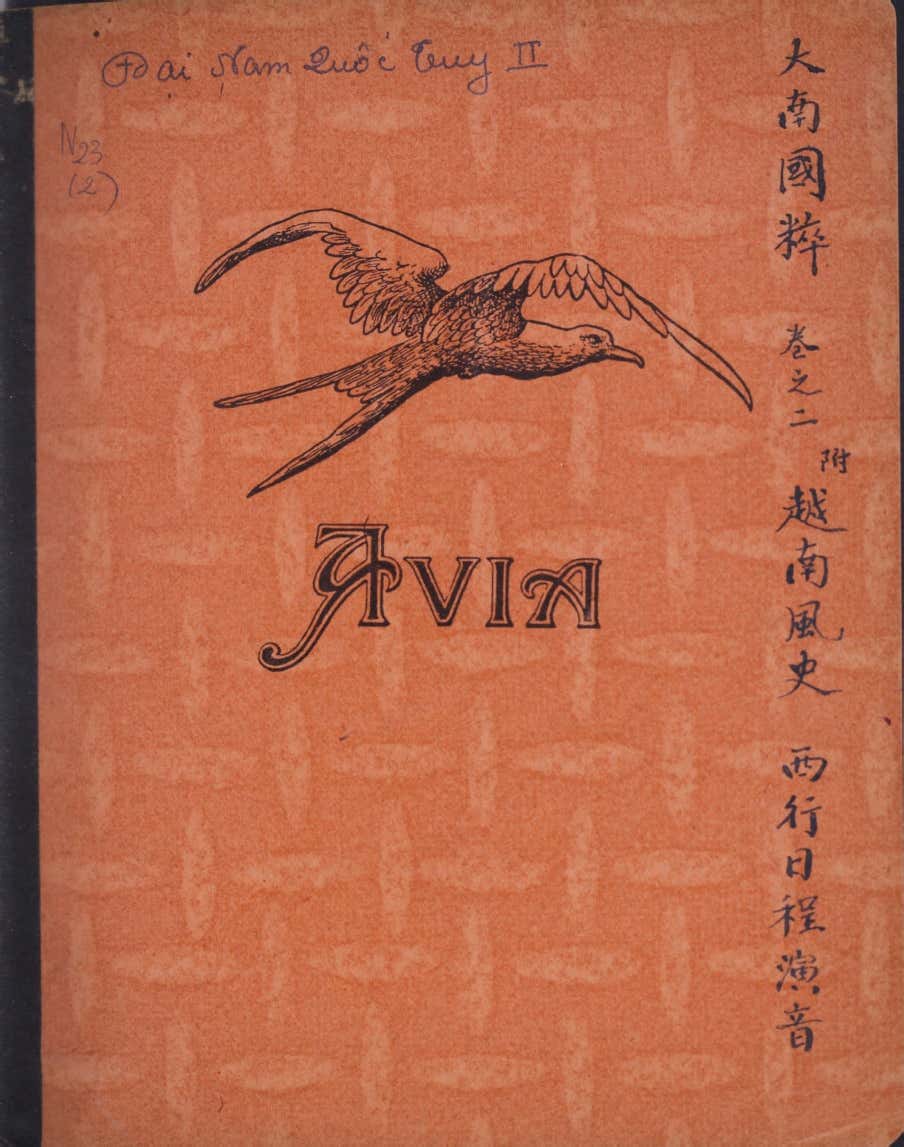 Đại Nam Quốc Túy II
N23
(2)
AVIA
大南國粹 卷之二 附 越南風史 西行日程演音